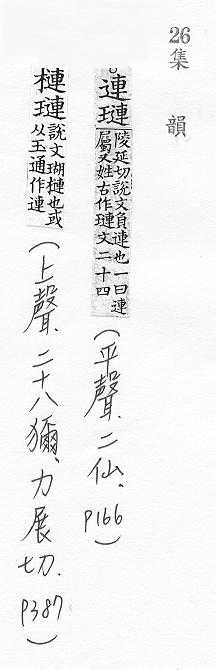 26 集韻
連璉 陵延切說文負連也一曰連屬又姓古作璉文二十四 (平聲.二仙.P166)
槤璉 說文瑚槤也或从玉通作連 (上聲.二十八獼、力展切.P387)